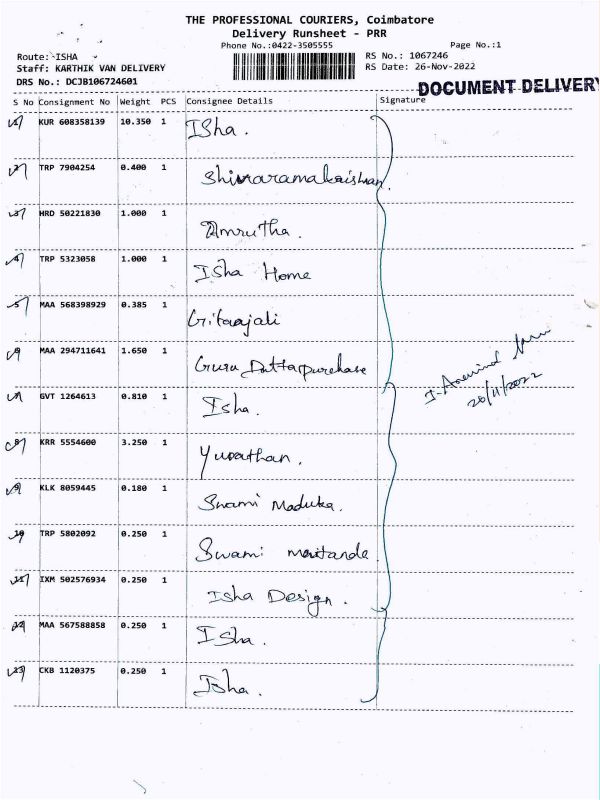 THE PROFESSIONAL COURIERS, Coimbatore
Delivery Runsheet - PRR
Phone No.:0422-3505555 Page No.:1
Route: ISHA RS No.: 1067246
Staff: KARTHIK VAN DELIVERY RS Date: 26-Nov-2022
DRS No.: DCJB106724601
DOCUMENT DELIVERY
S No Consignment No Weight PCS Consignee Details Signature
1 KUR 608358139 10.350 1 Isha.
2 TRP 7904254 0.400 1 Shivaramakrishnan.
3 HRD 50221830 1.000 1 Amrutha.
4 TRP 5323058 1.000 1 Isha Home
5 MAA 568398929 0.385 1 Gitanjali
6 MAA 294711641 1.650 1 Guru Datta purchase
7 GVT 1264613 0.810 1 Isha.
8 KRR 5554600 3.250 1
9 KLK 8059445 0.180 1 Swami Maduka.
10 TRP 5802092 0.250 1 Swami
11 IXM 502576934 0.250 1 Isha Design.
12 MAA 567588858 0.250 1 Isha.
13 CKB 1120375 0.250 1 Isha.